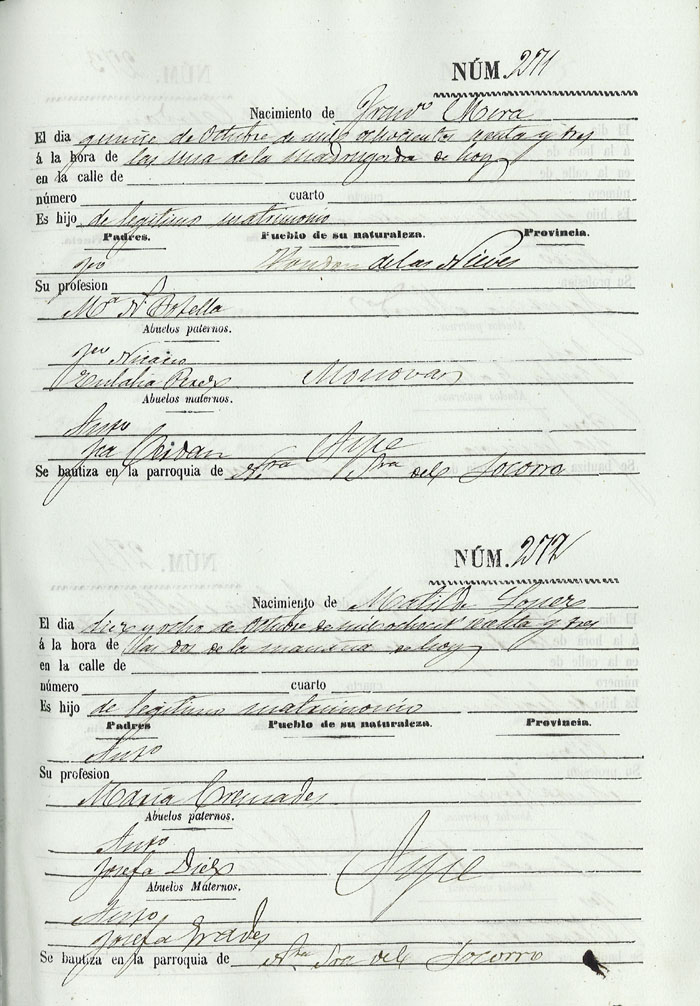 NÚM. 271
Nacimiento de Franco Mira
El dia quince de Octubre de mil ochocientos y tres
á la hora de las una de la madrugada de hoy
en la calle de
número cuarto
Es hijo de legitimo matrimonio
Padres. Pueblo de su naturaleza. Provincia.
Jco Hondon de las Nieves
Su profesion
Ma Na Botella
Abuelos paternos.
Jco Nicacio
Eulalia Perez Monovar
Abuelos maternos.
Anto
Jca Aspe
Se bautiza en la parroquia de Ntra Sra del Socorro
NÚM. 272
Nacimiento de Matilde Lopez
El dia diez y ocho de Octubre de mil ochoct y tres
á la hora de las dos de la mañana de hoy
en la calle de
número cuarto
Es hijo de legitimo matrimonio
Padres Pueblo de su naturaleza. Provincia.
Anto
Su profesion
Maria Cremades
Abuelos paternos.
Anto
Josefa Diez Aspe
Abuelos Maternos.
Anto
Josefa Prades
Se bautiza en la parroquia de Ntra Sra del Socorro